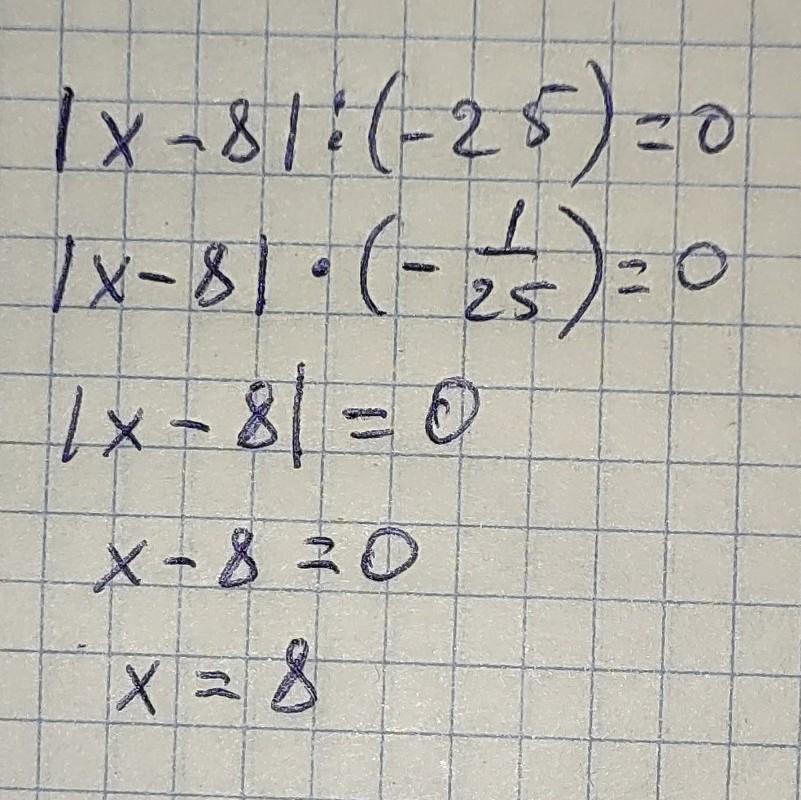 |x-8|:(-25)=0
|x-8|·(-1/25)=0
|x-8|=0
x-8=0
x=8